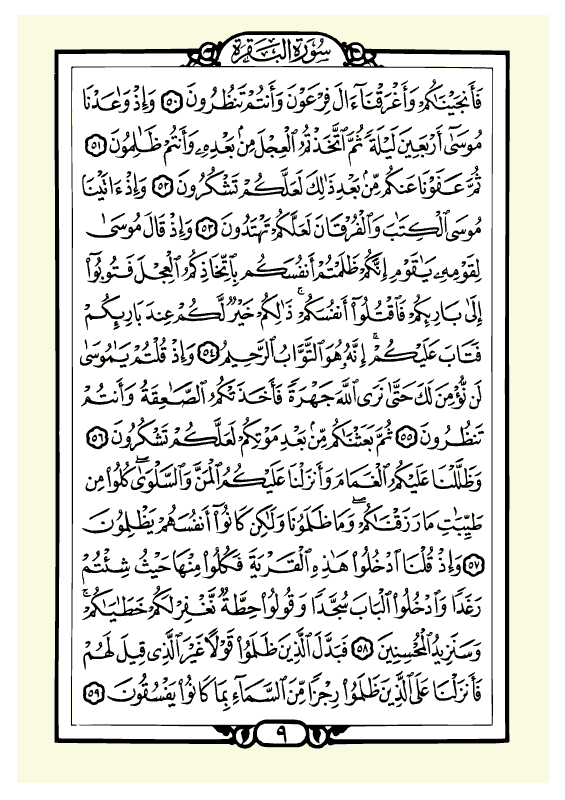 سُورَةُ الْبَقَرَةِ
فَأَنجَيْنَٰكُمْ وَأَغْرَقْنَآ ءَالَ فِرْعَوْنَ وَأَنتُمْ تَنظُرُونَ ٥٠ وَإِذْ وَٰعَدْنَا
مُوسَىٰٓ أَرْبَعِينَ لَيْلَةً ثُمَّ ٱتَّخَذتُّمُ ٱلْعِجْلَ مِنۢ بَعْدِهِۦ وَأَنتُمْ ظَٰلِمُونَ ٥١
ثُمَّ عَفَوْنَا عَنكُم مِّنۢ بَعْدِ ذَٰلِكَ لَعَلَّكُمْ تَشْكُرُونَ ٥٢ وَإِذْ ءَاتَيْنَا
مُوسَى ٱلْكِتَٰبَ وَٱلْفُرْقَانَ لَعَلَّكُمْ تَهْتَدُونَ ٥٣ وَإِذْ قَالَ مُوسَىٰ
لِقَوْمِهِۦ يَٰقَوْمِ إِنَّكُمْ ظَلَمْتُمْ أَنفُسَكُم بِٱتِّخَاذِكُمُ ٱلْعِجْلَ فَتُوبُوٓا۟
إِلَىٰ بَارِئِكُمْ فَٱقْتُلُوٓا۟ أَنفُسَكُمْ ۚ ذَٰلِكُمْ خَيْرٌ لَّكُمْ عِندَ بَارِئِكُمْ
فَتَابَ عَلَيْكُمْ ۚ إِنَّهُۥ هُوَ ٱلتَّوَّابُ ٱلرَّحِيمُ ٥٤ وَإِذْ قُلْتُمْ يَٰمُوسَىٰ
لَن نُّؤْمِنَ لَكَ حَتَّىٰ نَرَى ٱللَّهَ جَهْرَةً فَأَخَذَتْكُمُ ٱلصَّٰعِقَةُ وَأَنتُمْ
تَنظُرُونَ ٥٥ ثُمَّ بَعَثْنَٰكُم مِّنۢ بَعْدِ مَوْتِكُمْ لَعَلَّكُمْ تَشْكُرُونَ ٥٦
وَظَلَّلْنَا عَلَيْكُمُ ٱلْغَمَامَ وَأَنزَلْنَا عَلَيْكُمُ ٱلْمَنَّ وَٱلسَّلْوَىٰ ۖ كُلُوا۟ مِن
طَيِّبَٰتِ مَا رَزَقْنَٰكُمْ ۖ وَمَا ظَلَمُونَا وَلَٰكِن كَانُوٓا۟ أَنفُسَهُمْ يَظْلِمُونَ
٥٧ وَإِذْ قُلْنَا ٱدْخُلُوا۟ هَٰذِهِ ٱلْقَرْيَةَ فَكُلُوا۟ مِنْهَا حَيْثُ شِئْتُمْ
رَغَدًا وَٱدْخُلُوا۟ ٱلْبَابَ سُجَّدًا وَقُولُوا۟ حِطَّةٌ نَّغْفِرْ لَكُمْ خَطَٰيَٰكُمْ ۚ
وَسَنَزِيدُ ٱلْمُحْسِنِينَ ٥٨ فَبَدَّلَ ٱلَّذِينَ ظَلَمُوا۟ قَوْلًا غَيْرَ ٱلَّذِى قِيلَ لَهُمْ
فَأَنزَلْنَا عَلَى ٱلَّذِينَ ظَلَمُوا۟ رِجْزًا مِّنَ ٱلسَّمَآءِ بِمَا كَانُوا۟ يَفْسُقُونَ ٥٩
٩